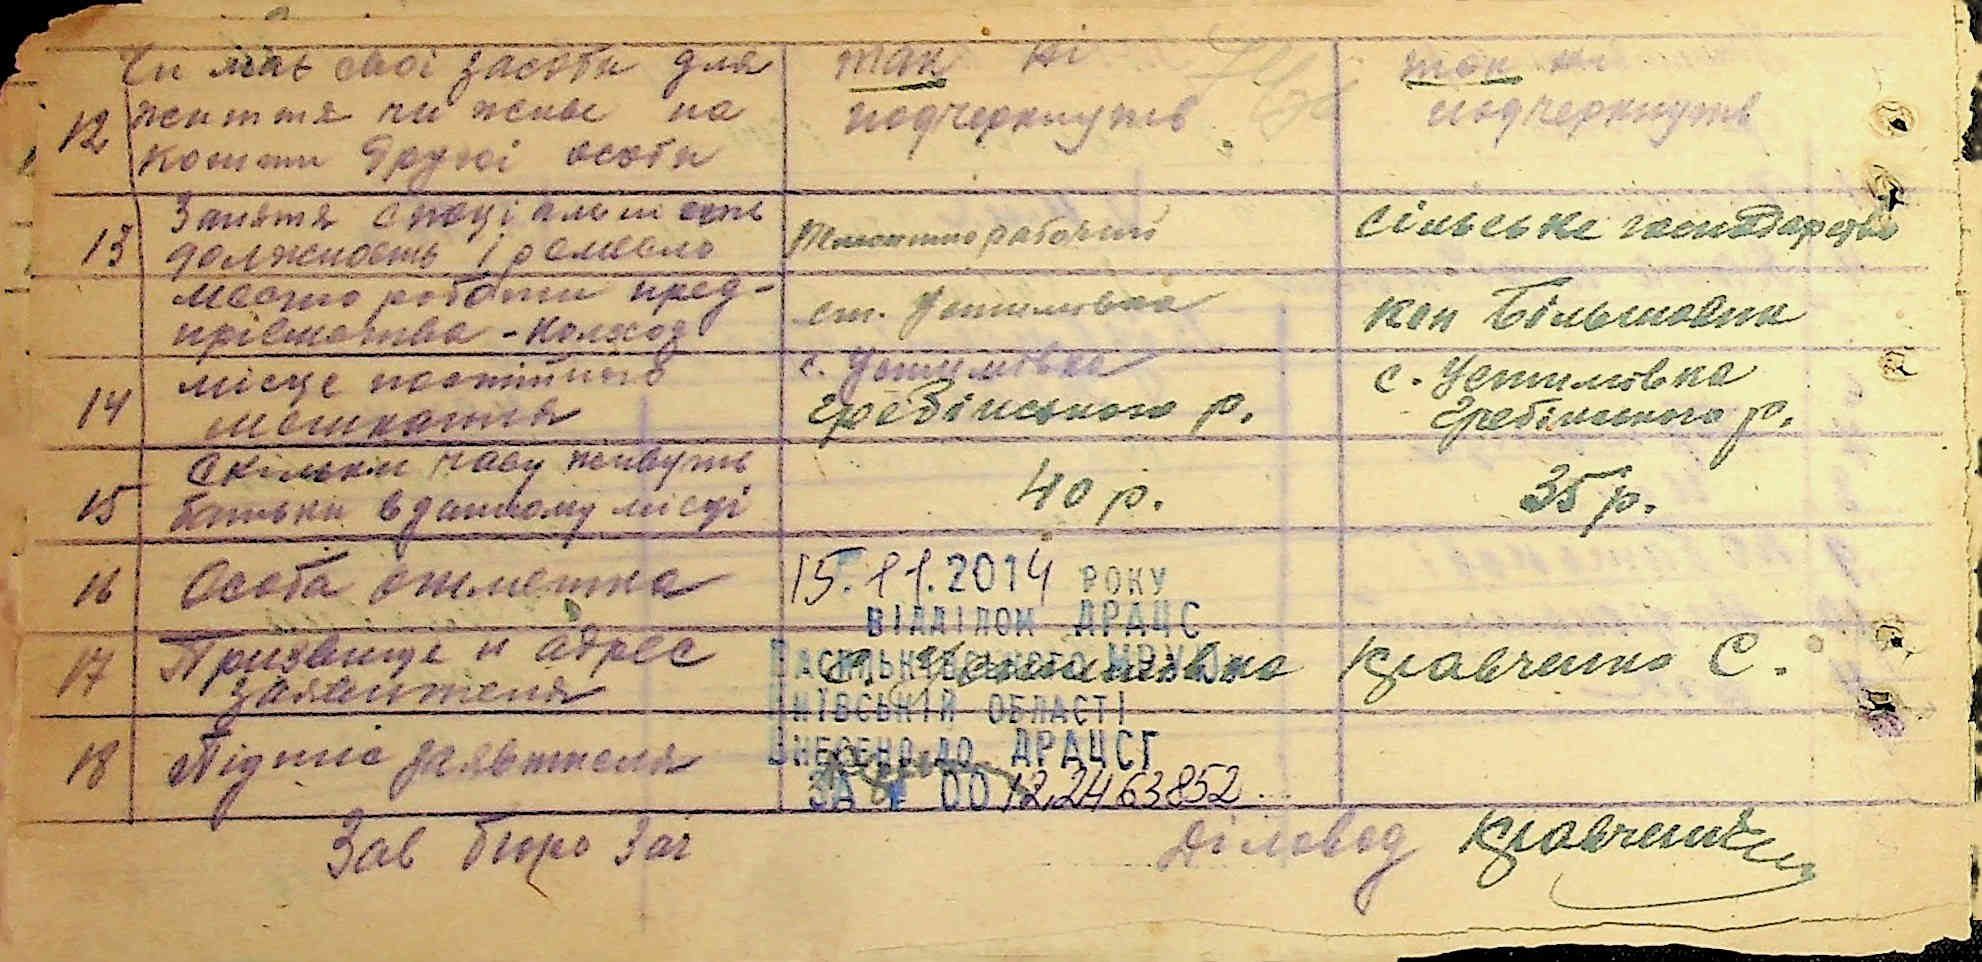 Чи має свої засоби для
12 життя чи живе на
кошти другої особи
так ні
подчеркнуть
так ні
подчеркнуть
13 Заняття спеціальність
должность і ремесло
рабочий
сільське господарство
место роботи пред-
пріємства - колхоз
ст. Устимівка
коп Більшовик
14 місце постійного
мешкання
с. Устимівка
Гребінського р.
с. Устимівка
Гребінського р.
15 Скільки часу живуть
батьки в данному місці
40 р.
35 р.
16 Особа отметка
15.11.2014 РОКУ
ВІДДІЛОМ ДРАЦС
ВАСИЛЬКІВСЬКОГО МРУЮ
КИЇВСЬКІЙ ОБЛАСТІ
ВНЕСЕНО ДО ДРАЦСГ
ЗА № 0012,2463852
17 Призвище и адрес
заявителя
с. Устимівка Кравченко С.
18 Підпис заявителя
Зав бюро Заг
Діловод Кравченко